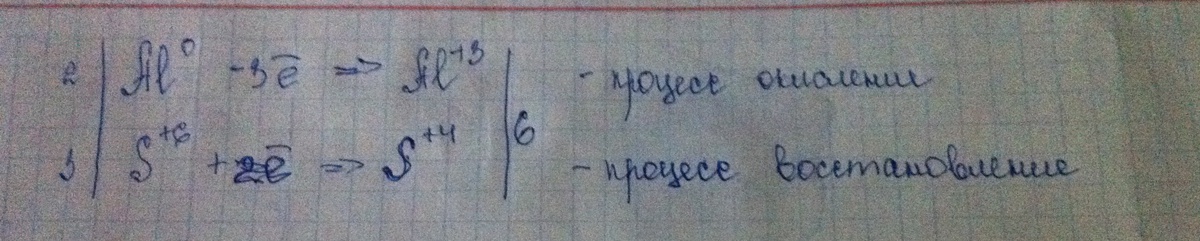 2 | Al⁰ -3ē => Al⁺³ | - процесс окисление
3 | S⁺⁶ +2ē => S⁺⁴ | 6 - процесс восстановление